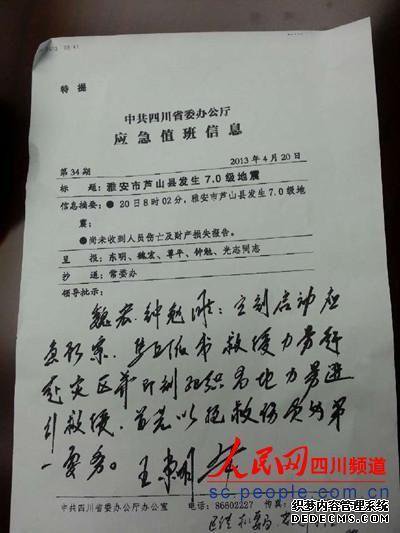 特 提
中共四川省委办公厅
应急值班信息
第34期 2013年4月20日
标 题：雅安市芦山县发生7.0级地震
信息摘要：●20日8时02分，雅安市芦山县发生7.0级地
震；
●尚未收到人员伤亡及财产损失报告。
呈 报：东明、魏宏、尊平、钟勉、光志同志
抄 送：常委办
领导批示：
魏宏、钟勉同志：立刻启动应
急预案， 救援力量
赶灾区并即刻组织各地力量进
行救援，首先以抢救伤员为第
一要务。王东明
人民网 四川频道
sc.people.com.cn
中共四川省委办公厅办公室 电话：86602227 传真：
织梦内容管理系统
DEDECMS.COM